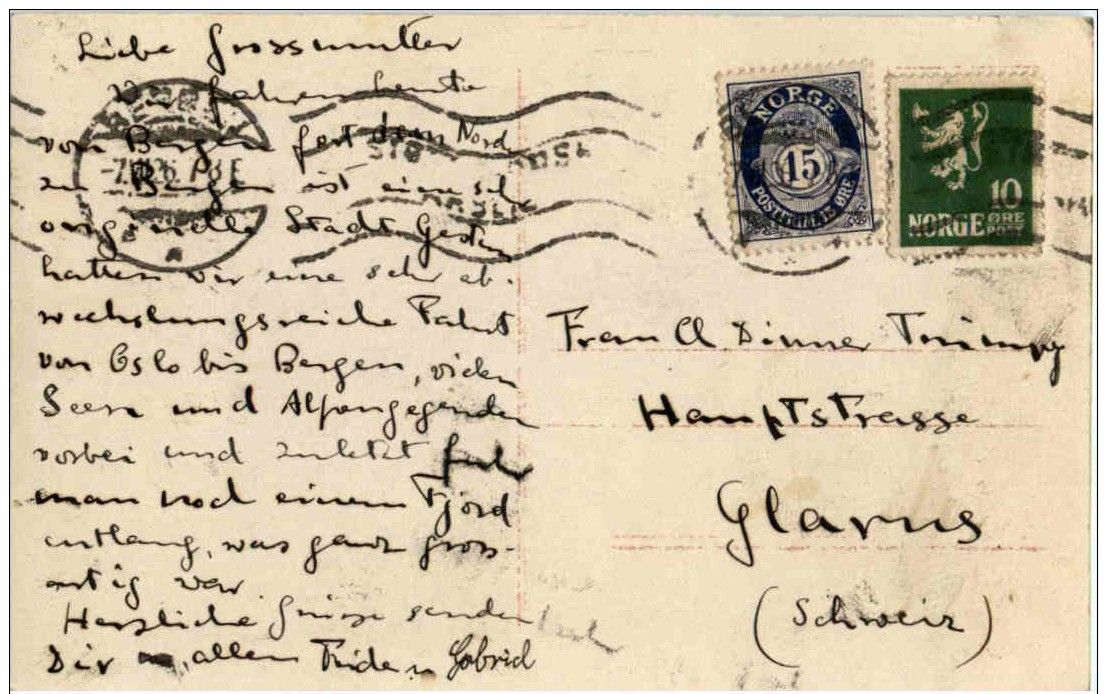 Liebe Grossmutter
Wir fahren heute
von Bergen fort dem Nord
zu Bergen ist eine sehr
originelle Stadt Gestern
hatten wir eine sehr ab-
wechslungsreiche Fahrt
von Oslo bis Bergen, vielen
Seen und Alpengegenden
vorbei und zuletzt fuhr
man noch einem Fjord
entlang, was ganz gross-
artig war
Herzliche Grüsse senden
Dir allen Gabriel
NORGE
15
POSTFRIMERKE ØRE
10
NORGE ØRE
POST
Frau A Dinner Trümpy
Hauptstrasse
Glarus
(Schweiz)